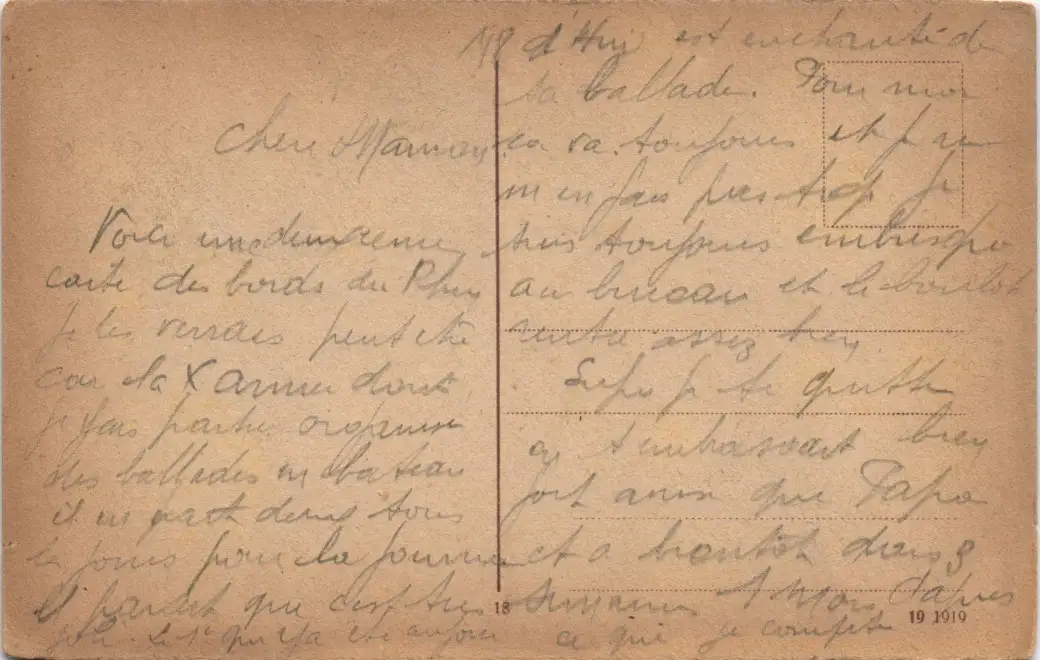 Chère Maman
Voici une deuxième
carte des bords du Rhin
je les verrais peut etre
car la X armée dont
je fais partie organise
des ballades en bateau
il en part deux tous
les jours pour la journée
il parait que c'est tres
joli. Le 1er qui y a été aujour
d'hui est enchanté de
sa ballade. Pour moi
ca va toujours et je ne
m'en fais pas trop je
suis toujours embusqué
au bureau et le boulot
rentre assez bien
je te quitte
en t'embrassant bien
fort ainsi que Papa
et a bientôt dans 3
semaines 1 mois d'apres
ce que je compte
18
19 1919